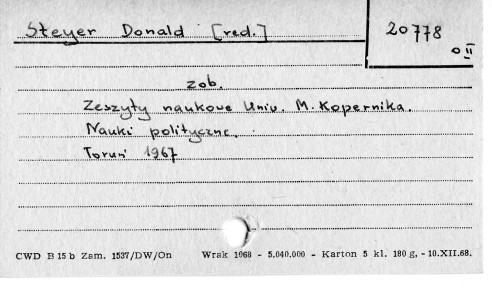 Steyer Donald [red.]
20778
0 II
zob.
Zeszyty naukowe Uniw. M. Kopernika.
Nauki polityczne.
Toruń 1967
CWD B 15 b Zam. 1537/DW/On Wrak 1068 - 5.040.000 - Karton 5 kl. 180 g, - 10.XII.68.